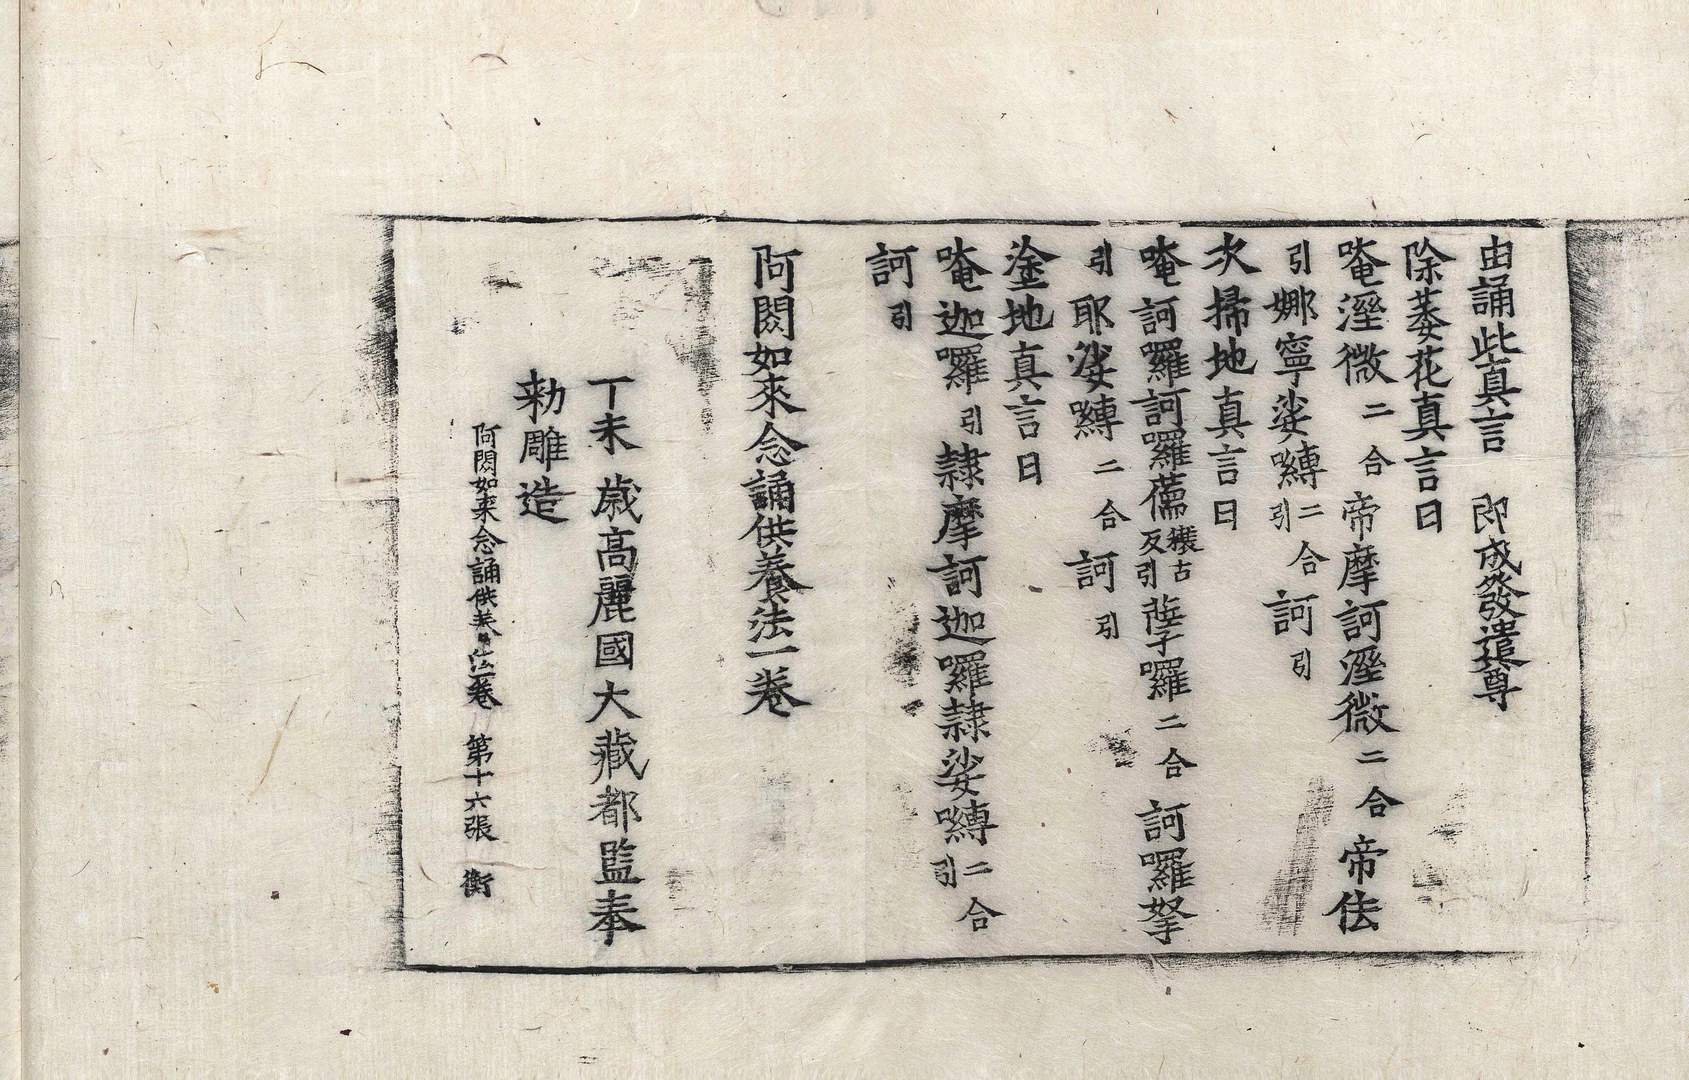 由誦此真言 即成發遣尊
除萎花真言曰
唵溼微二合帝摩訶溼微二合帝佉
引娜寧娑嚩二合引訶引
次掃地真言曰
唵訶羅訶囉
攞古反引
囉二合訶囉拏
引耶娑嚩二合訶引
塗地真言曰
唵迦囉引隷摩訶迦囉隷娑嚩二合引
訶引
阿閦如來念誦供養法一卷
丁未歲高麗國大藏都監奉
勅雕造
阿閦如来念誦供養法卷 第十六張 衝